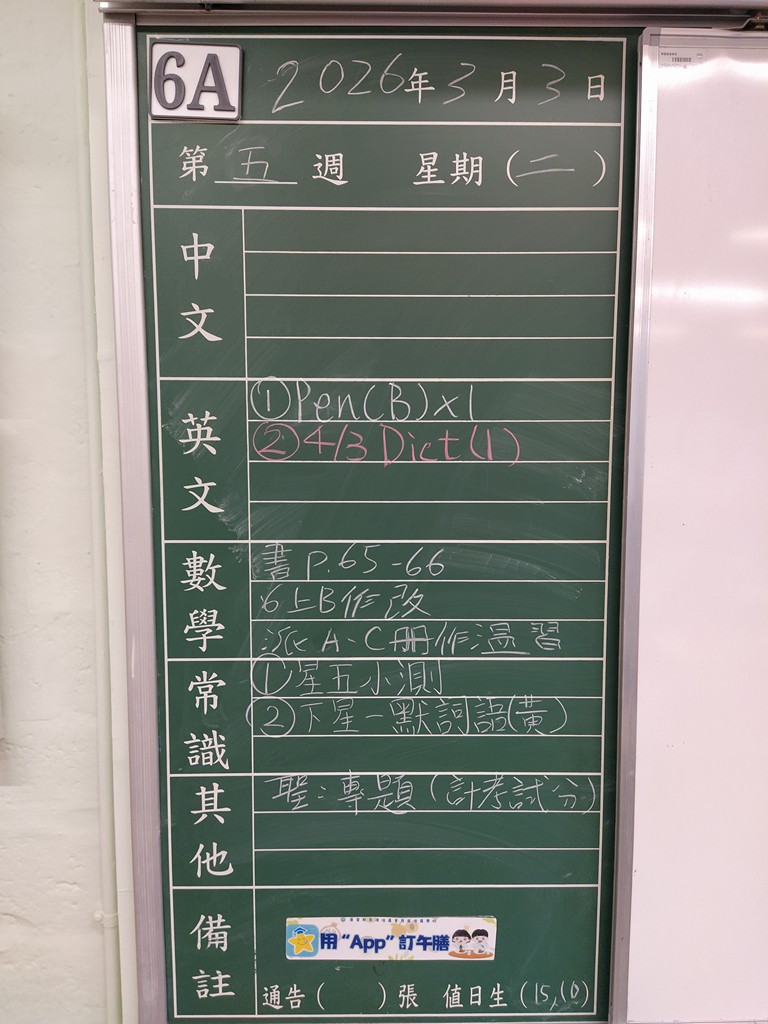 6A 2026年3月3日
第五週 星期(二)
中文
英文
①Pen(B)x1
②4/3 Dict(1)
數學
書 p.65-66
6上B作改
派 A-C冊作溫習
常識
①星五小測
②下星一默詞語(黃)
其他
聖:專題(計考試分)
備註
用“App”訂午膳
通告( )張 值日生(15,10)